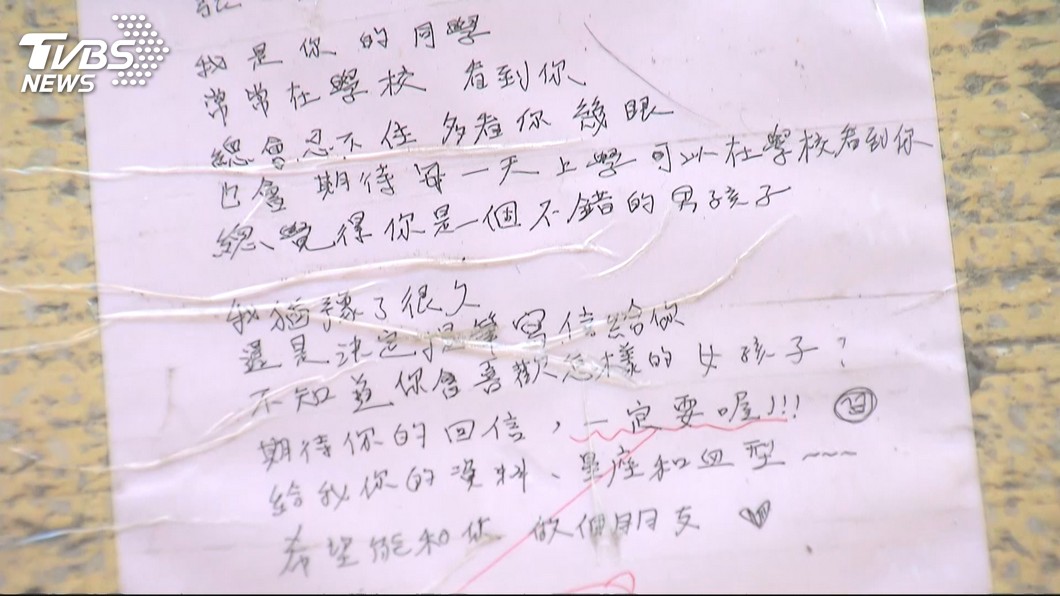 TVBS
NEWS
我是你的同學
常常在學校 看到你
總會忍不住多看你幾眼
也會期待每一天上學可以在學校看到你
總覺得你是一個不錯的男孩子
我猶豫了很久
還是決定提筆寫信給你
不知道你會喜歡怎樣的女孩子?
期待你的回信,一定要喔!!!
給我你的資料、星座和血型~~~
希望能和你 做個朋友